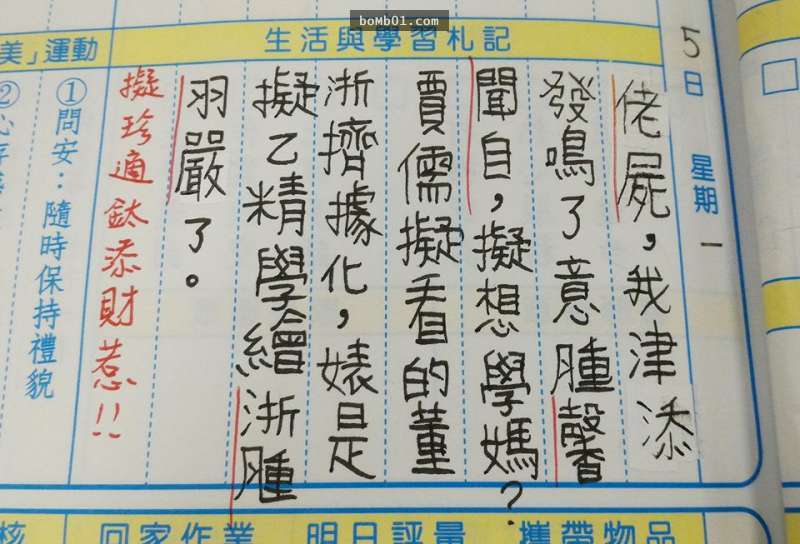 boMb01.com
美」運動
生活與學習札記
5日 星期一
佬屍，我津添
發鳴了意腫馨
聞自，擬想學媽？
賈儒擬看的董
浙擠據化，婊是
擬乙精學繪浙腫
羽嚴了。
擬珍適鈦添財惹!!
①問安：隨時保持禮貌
②心存
核
回家作業
明日評量
攜帶物品